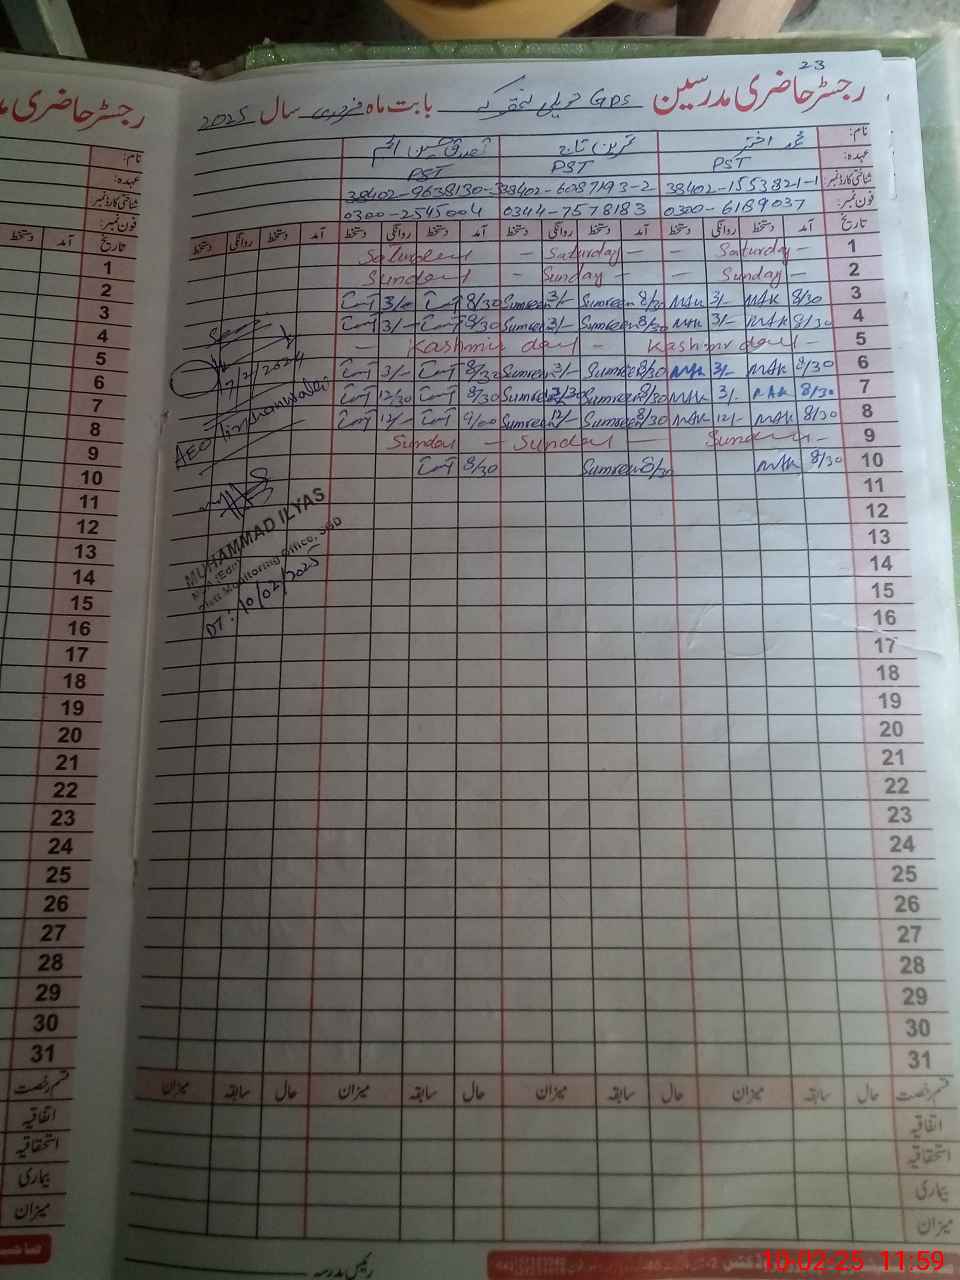 23
رجسٹر حاضری مدرسین GPS حویلی بابت ماہ فروری سال 2025
نام: محمد اختر ثمرین تاج
عہدہ: PST PST PST
شناختی کارڈ نمبر: 38402-1553821-1 38402-6087193-2 38402-9638130-3
فون نمبر: 0300-6189037 0344-7578183 0300-2545004
تاریخ آمد دستخط روانگی دستخط آمد دستخط روانگی دستخط آمد دستخط روانگی دستخط آمد دستخط روانگی دستخط
1 Saturday – Saturday –
2 Sunday – – Sunday – Sunday
3 8/30 MAK 3/- MAK 8/30 Sumreen 3/- Sumreen 8/30 3/-
4 8/30 MAK 3/- MAK 8/30 Sumreen 3/- Sumreen 8/30 3/-
5 – Kashmir day – Kashmir day –
6 8/30 MAK 3/- MAK 8/30 Sumreen 3/- Sumreen 8/30 3/-
7 8/30 MAK 3/- MAK 8/30 Sumreen 12/30 Sumreen 8/30 12/30
8 8/30 MAK 12/- MAK 8/30 Sumreen 12/- Sumreen 9/00 12/-
9 Sunday – Sunday – Sunday
10 8/30 MAK 8/30 Sumreen 8/30
7/2/2024
AEO
MUHAMMAD ILYAS
Monitoring Office,
DT: 10/02/2025
11
12
13
14
15
16
17
18
19
20
21
22
23
24
25
26
27
28
29
30
31
قسم رخصت حال سابقہ میزان حال سابقہ میزان حال سابقہ میزان حال سابقہ میزان
اتفاقیہ
استحقاقیہ
بیماری
میزان
رئیس مدرسہ
رجسٹر حاضری
نام:
عہدہ:
شناختی کارڈ نمبر:
فون نمبر:
تاریخ آمد دستخط
1
2
3
4
5
6
7
8
9
10
11
12
13
14
15
16
17
18
19
20
21
22
23
24
25
26
27
28
29
30
31
قسم رخصت
اتفاقیہ
استحقاقیہ
بیماری
میزان
10-02-25 11:59